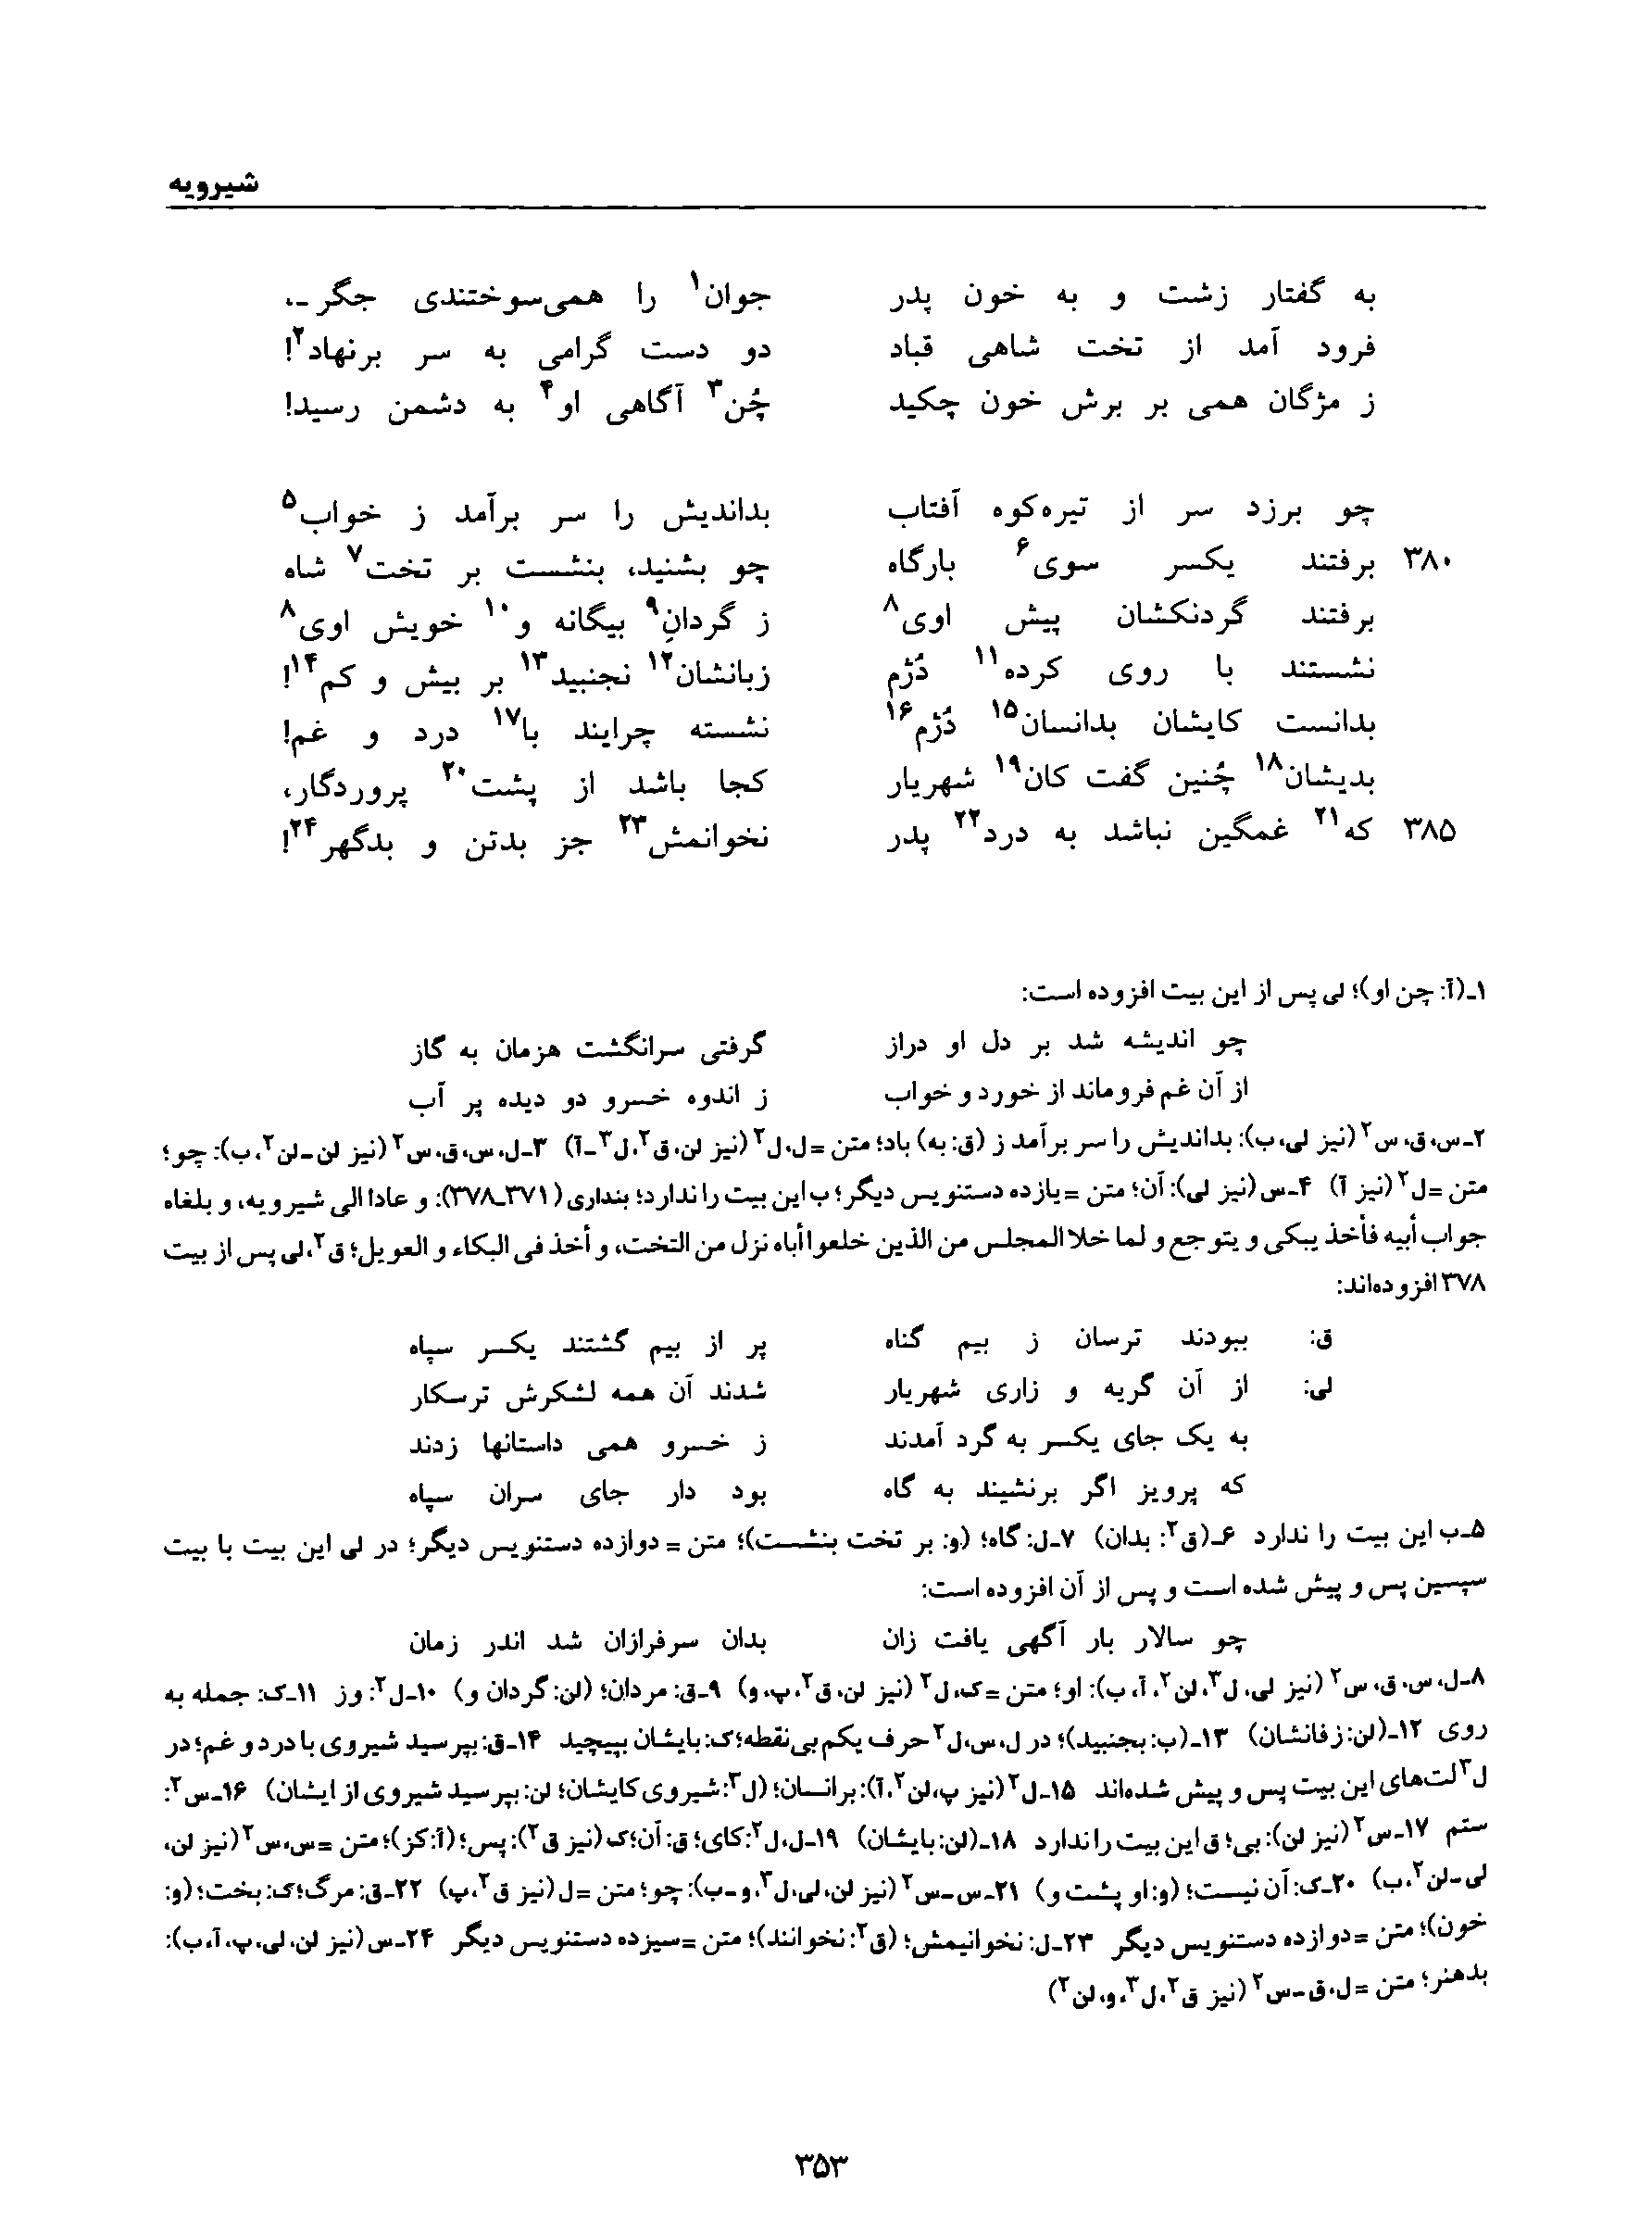 شیرویه
به گفتار زشت و به خون پدر جوان¹ را همی‌سوختندی جگر -،
فرود آمد از تخت شاهی قباد دو دست گرامی به سر برنهاد²!
ز مژگان همی بر برش خون چکید چُن³ آگاهی او⁴ به دشمن رسید!
چو برزد سر از تیره‌کوه آفتاب بداندیش را سر برآمد ز خواب⁵
۳۸۰ برفتند یکسر سوی⁶ بارگاه چو بشنید، بنشست بر تخت⁷ شاه
برفتند گردنکشان پیش اوی⁸ ز گردانِ⁹ بیگانه و¹⁰ خویش اوی⁸
نشستند با روی کرده¹¹ دُژم زبانشان¹² نجنبید¹³ بر بیش و کم¹⁴!
بدانست کایشان بدانسان¹⁵ دُژم¹⁶ نشسته چرایند با¹⁷ درد و غم!
بدیشان¹⁸ چُنین گفت کان¹⁹ شهریار کجا باشد از پشت²⁰ پروردگار،
۳۸۵ که²¹ غمگین نباشد به درد²² پدر نخوانمش²³ جز بدتن و بدگهر²⁴!
۱ـ(آ: چن او)؛ لی پس از این بیت افزوده است:
چو اندیشه شد بر دل او دراز گرفتی سرانگشت هزمان به گاز
از آن غم فروماند از خورد و خواب ز اندوه خسرو دو دیده پر آب
۲ـس،ق،س² (نیز لی،ب): بداندیش را سر برآمد ز (ق:به) باد؛ متن =ل،ل² (نیز لن،ق²،ل³ـآ) ۳ـل،س،ق،س² (نیز لن-لن²،ب): چو؛
متن =ل² (نیز آ) ۴ـس (نیز لی): آن؛ متن =یازده دستنویس دیگر؛ ب این بیت را ندارد؛ بنداری (۳۷۱ـ۳۷۸): و عادا الی شیرویه، و بلغاه
جواب أبیه فأخذ یبکی و یتوجع و لما خلا المجلس من الذین خلعوا أباه نزل من التخت، و أخذ فی البکاء و العویل؛ ق²،لی پس از بیت
۳۷۸ افزوده‌اند:
ق: ببودند ترسان ز بیم گناه پر از بیم گشتند یکسر سپاه
لی: از آن گریه و زاری شهریار شدند آن همه لشکرش ترسکار
به یک جای یکسر به گرد آمدند ز خسرو همی داستانها زدند
که پرویز اگر برنشیند به گاه بود دار جای سران سپاه
۵ـب این بیت را ندارد ۶ـ(ق²: بدان) ۷ـل: گاه؛ (و: بر تخت بنشست)؛ متن = دوازده دستنویس دیگر؛ در لی این بیت با بیت
سپسین پس و پیش شده است و پس از آن افزوده است:
چو سالار بار آگهی یافت زان بدان سرفرازان شد اندر زمان
۸ـل،س،ق،س² (نیز لی،ل³،لن²،آ،ب): او؛ متن =ک،ل² (نیز لن،ق²،پ،و) ۹ـق: مردان؛ (لن: گردان و) ۱۰ـل²: وز ۱۱ـک: جمله به
روی ۱۲ـ(لن: زفانشان) ۱۳ـ(ب: بجنبید)؛ در ل،س،ل² حرف یکم بی‌نقطه؛ ک: بایشان بپیچید ۱۴ـق: بپرسید شیروی با درد و غم؛ در
ل³ لت‌های این بیت پس و پیش شده‌اند ۱۵ـل² (نیز پ،لن²،آ): برانسان؛ (ل³: شیروی کایشان؛ لن: بپرسید شیروی از ایشان) ۱۶ـس²:
ستم ۱۷ـس² (نیز لن): بی؛ ق این بیت را ندارد ۱۸ـ(لن: بایشان) ۱۹ـل،ل²: کای؛ ق: آن؛ ک (نیز ق²): پس؛ (آ: کز)؛ متن =س،س² (نیز لن،
لی-لن²،ب) ۲۰ـک: آن نیست؛ (و: او پشت و) ۲۱ـس-س² (نیز لن،لی،ل³،و-ب): چو؛ متن =ل (نیز ق²،پ) ۲۲ـق: مرگ؛ ک: بخت؛ (و:
خون)؛ متن =دوازده دستنویس دیگر ۲۳ـل: نخوانیمش؛ (ق²: نخوانند)؛ متن =سیزده دستنویس دیگر ۲۴ـس (نیز لن،لی،پ،آ،ب):
بدهنر؛ متن =ل،ق-س² (نیز ق²،ل³،و،لن²)
۳۵۳